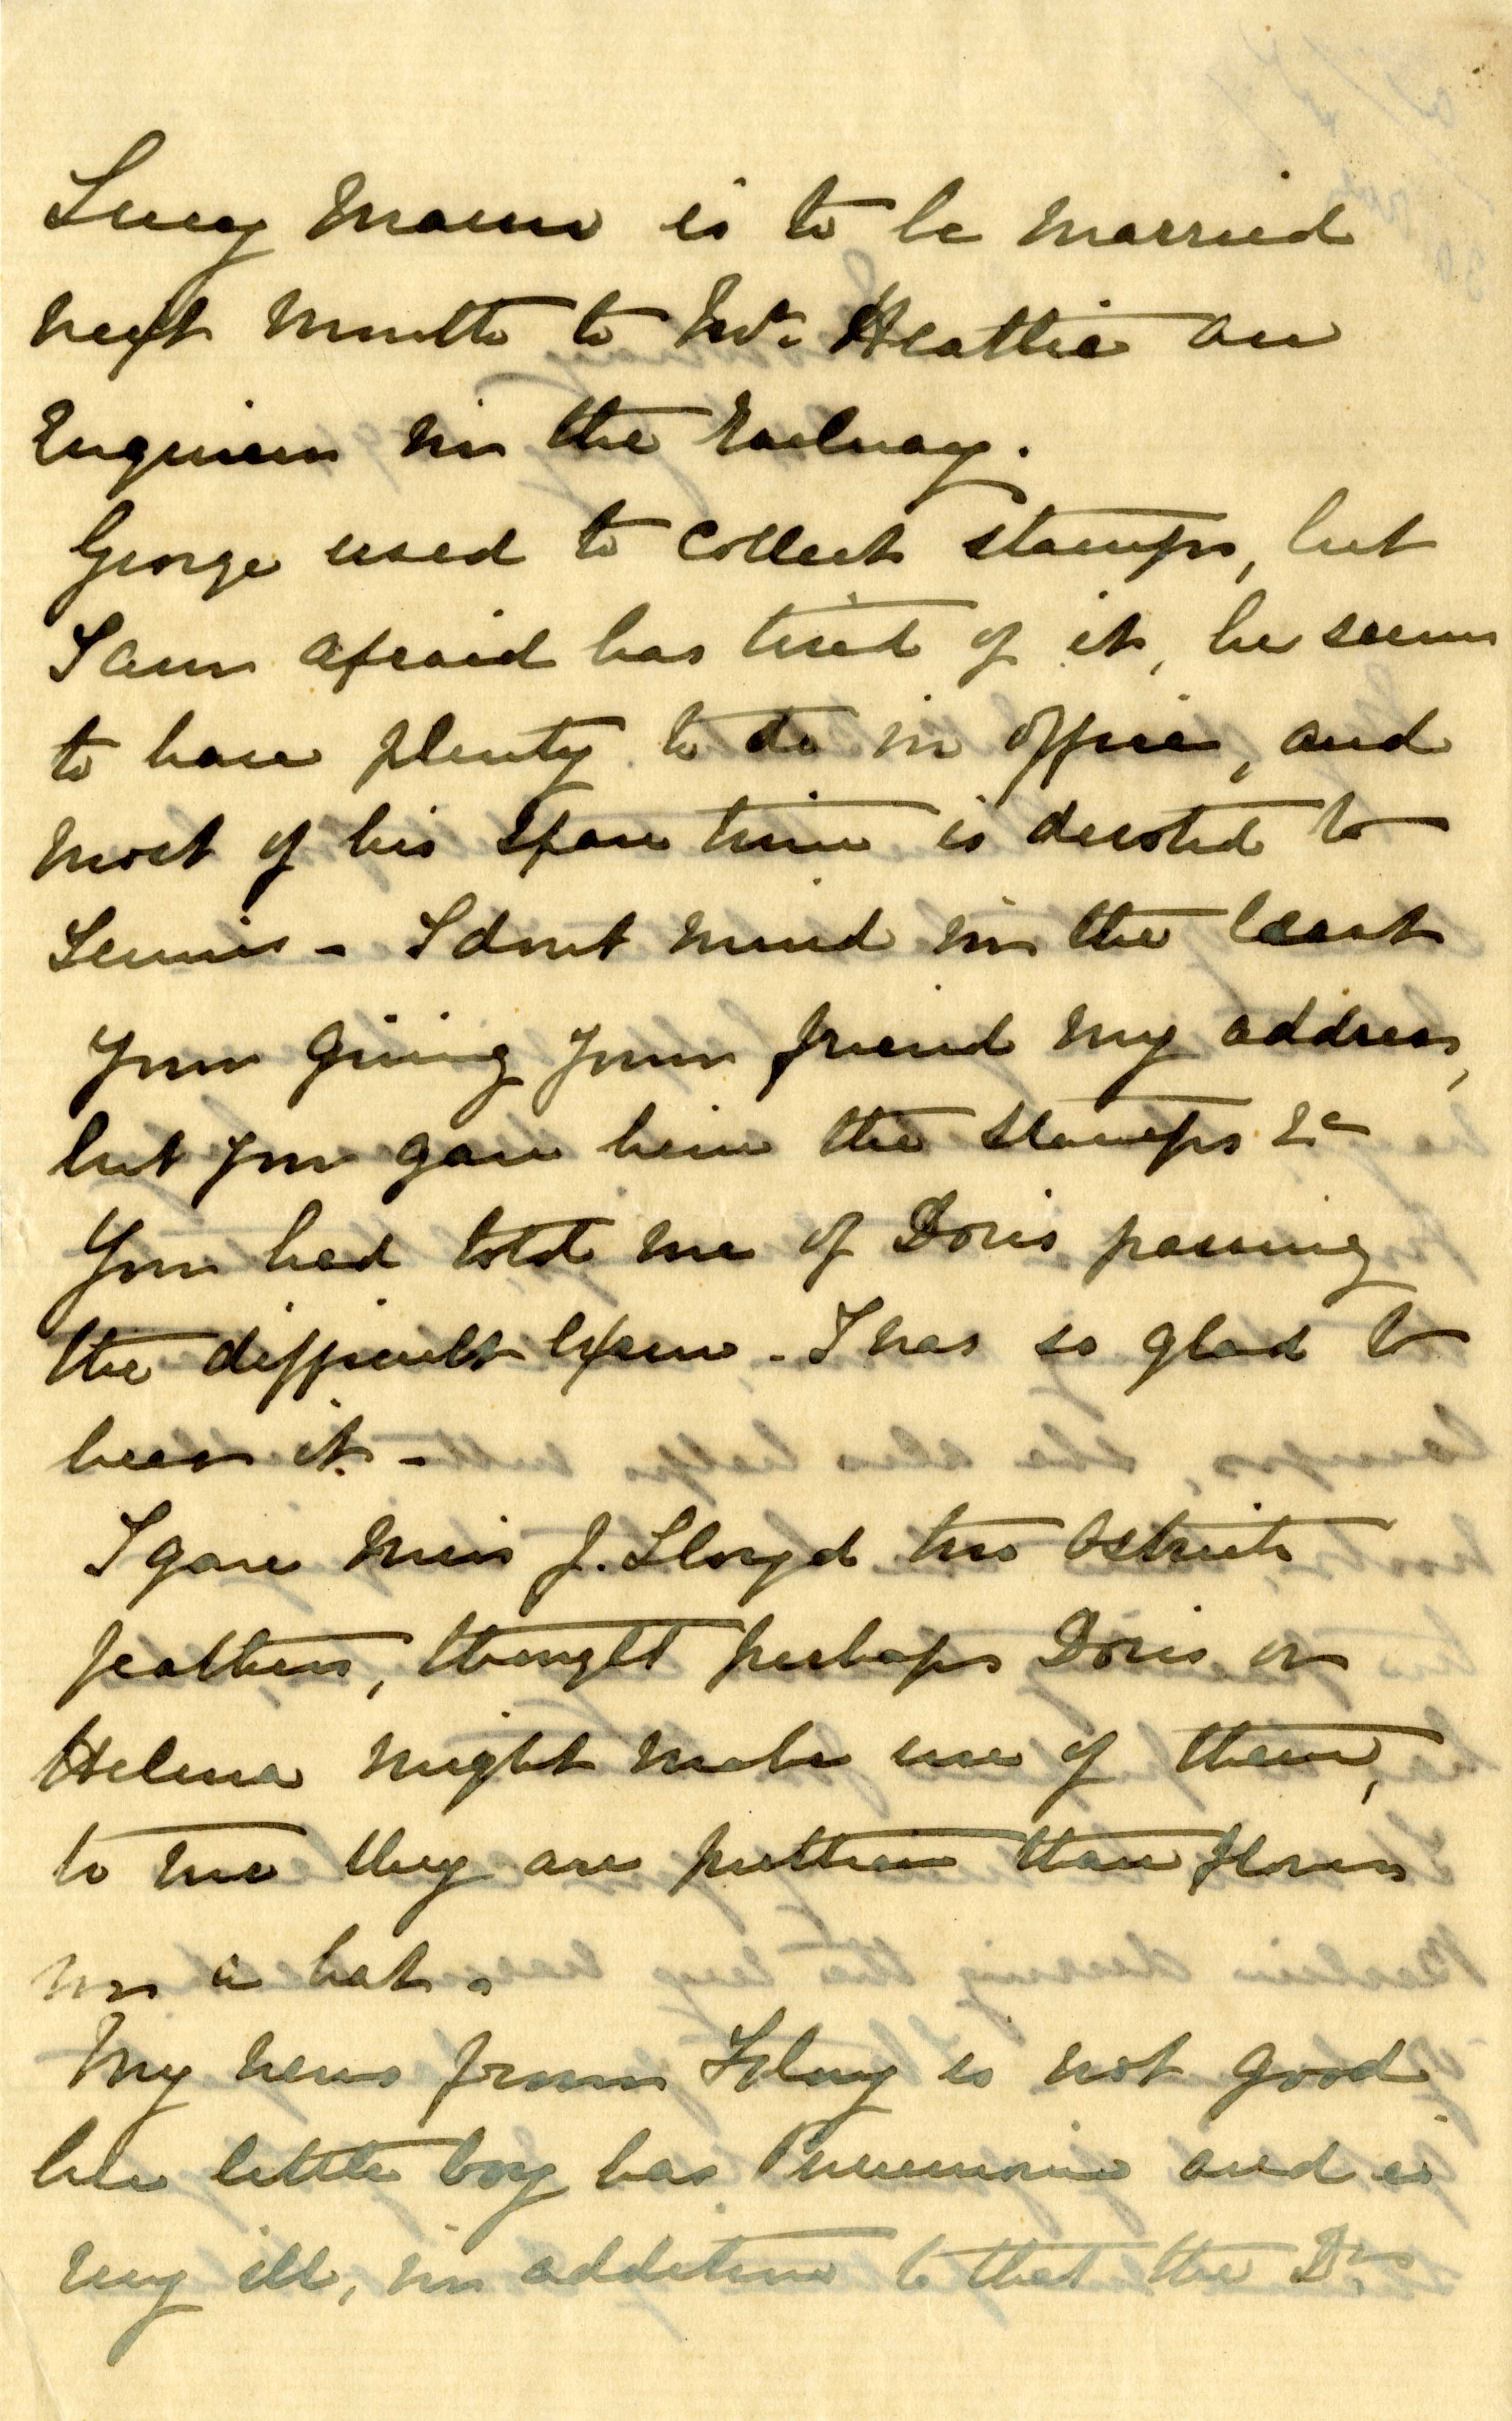 Lucy Mann is to be married
next month to Mr. Heattie an
Engineer in the Railway.
George used to collect stamps, but
I am afraid has tired of it, he seems
to have plenty to do in office, and
most of his spare time is devoted to
Tennis - I dont mind in the least
your giving your friend my address,
but you gave him the stamps &c
You had told me of Doris passing
the difficult Exam - I was so glad to
hear it -
I gave Miss J. Lloyd two Ostrich
feathers, thought perhaps Doris or
Helena might make use of them,
to me they are prettier than flowers
in a hat.
My news from is not good
her little boy has Pneumonia and is
very ill, in addition to that the Drs